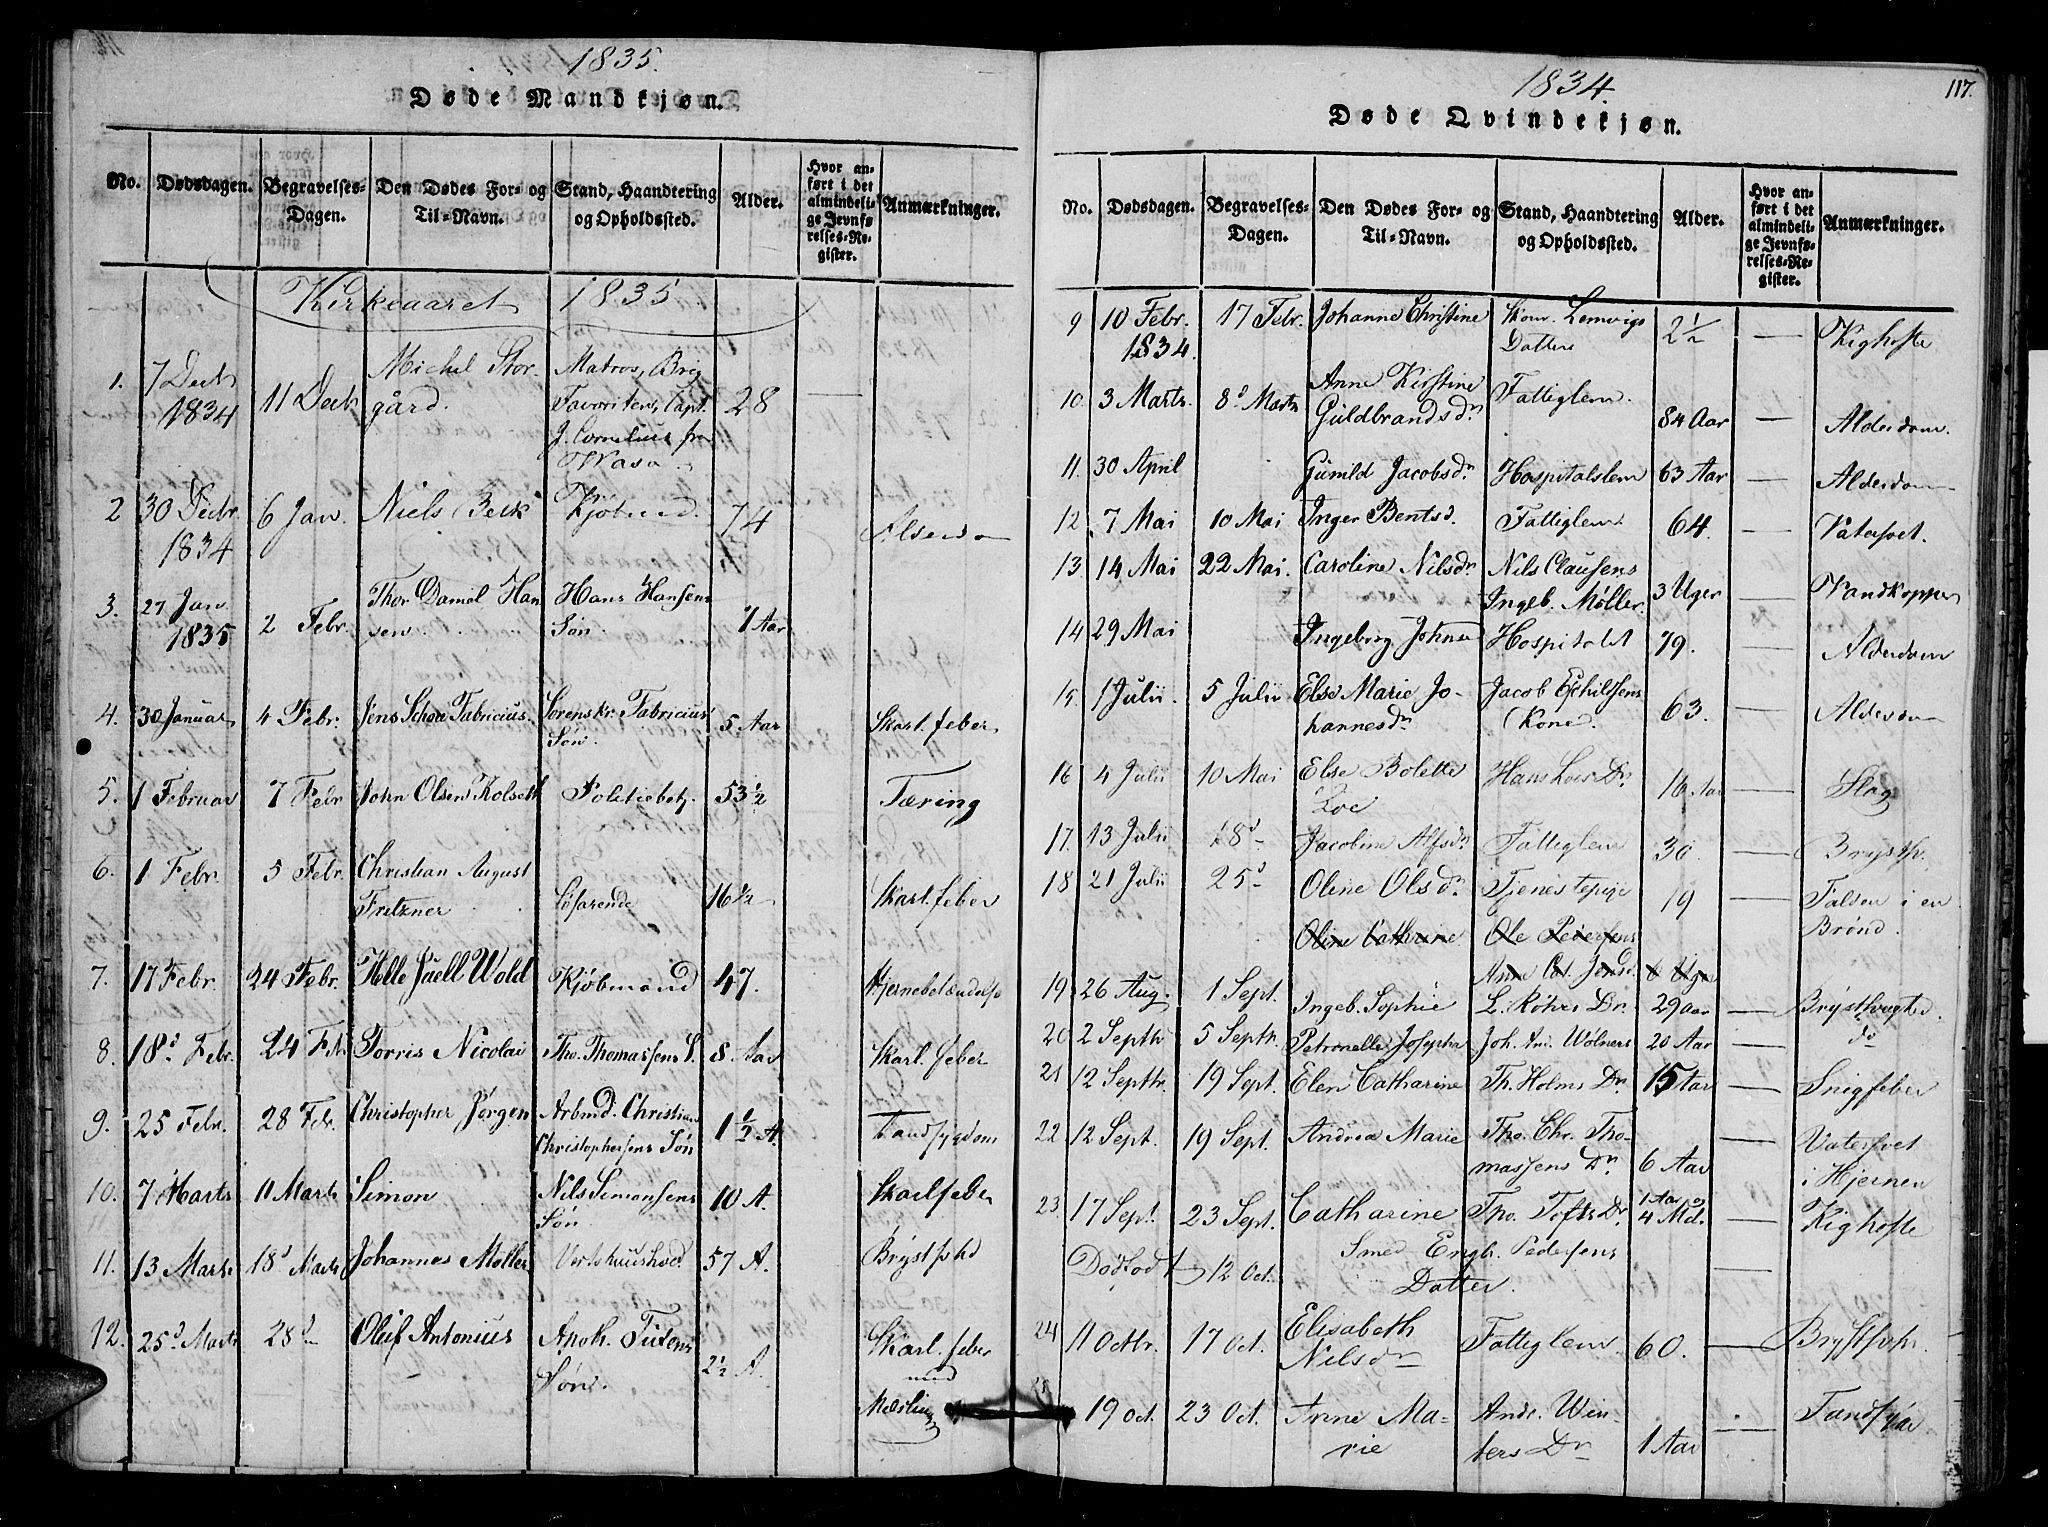 1835.
Døde Mandkjøn.
No.
Dødsdagen.
Begravelses-Dagen.
Den Dødes For- og Til-Navn.
Stand, Haandtering og Opholdssted.
Alder.
Hvor anført i det almindelige Jevnførelses-Register.
Anmærkninger.
Kirkeaaret 1835
1. 7 Decbr 1834 11 Decbr Michel Storgård. Matros, Brig Favoriten, Capt. J. Cornelius fra Wasa 28 —
2 30 Decbr. 1834 6 Jan. Niels Beck Kjøbmd 74
3. 27 Jan 1835 2 Febr. Thor Daniel Hansen Hans Hansens Søn. 1 Aar
4. 30 Januar 4 Febr. Jens Schou Fabricius Sorenskr. Fabricius' Søn. 5 Aar Skarl. feber
5. 1 Februar 7 Febr John Olsen Kolseth Politiebetj. 53 1/2 Tæring
6. 1 Febr. 5 Febr. Christian August Fritzner Søfarende 16 1/2 Skarl. feber
7. 17 Febr. 24 Febr. Wold Kjøbmand 47. Hjernebetændelse
8. 18d Febr. 24 Feb Torris Nicolai Tho. Thomassens S. 8 Aar Skarl. feber
9. 25 Febr. 28 Febr. Christopher Jørgen Arbmd. Christian Christophersens Søn 1 1/2 A. Tandsygdom
10. 7 Marts 11 Marts Simon Nils Simonsens Søn 10 A. Skarlfeber
11. 13 Marts 18d Marts Johannes Møller Vertshuushold 57 A. Brystsyd
12. 25d Marts 28d Oluf Antonius Apoth. Tidens Søn. 2 1/2 A. Skarl. feber med Meslinger
1834.
117.
Døde Qvindekjøn.
No.
Dødsdagen.
Begravelses-Dagen.
Den Dødes For- og Til-Navn.
Stand, Haandtering og Opholdssted.
Alder.
Hvor anført i det almindelige Jevnførelses-Register.
Anmærkninger.
9 10 Febr. 1834. 17 Febr. Johanne Christine Skom. Lemvigs Datter 2 1/2 — Kighoste
10. 3 Marts. 8d Marts Anne Kirstine Guldbrandsdr. Fattiglem. 84 Aar — Alderdom.
11. 30 April Gunild Jacobsdr. Hospitalslem 63 Aar — Alderdom
12 7 Mai 10 Mai Inger Bentsd. Fattiglem. 64. — Vatersot.
13. 14 Mai 22 Mai. Caroline Nilsdr. Nils Clausens Ingeb. Møller. 3 Uger — Vandkopper
14 29 Mai Ingeborg Johnsd Hospitalet 79. — Alderdom
15 1 Julii 5 Julii Else Marie Johannesdr. Jacob Eskildsens Kone. 63. — Alderdom
16 4 Julii 10 Mai Else Bolette Loe Hans Loes Dr. 16 Aar — Slag
17. 13 Julii 18d Jacobine Alfsdr. Fattiglem 30. — Brystsy.
18 21 Julii 25d Oline Olsdr. Tjenestepige 19 — Falden i en Brønd.
Oline Cathrine Ole Pedersens Anne Cat. Jensd. 6 Uger
19 26 Aug. 1 Sept. Ingeb. Sophie L. Røhrs Dr. 29 Aar — Brystsvaghed.
20 2 Septb 5 Septb. Petronelle Josepha Joh. And. Wolners 20 Aar — do
21 12 Septbr. 19 Sept. Elen Catharine Th. Holms Dr. 15 Aar — Snigfeber
22 12 Sept. 19 Sept. Andrea Marie Tho. Chr. Thomassens Dr. 6 Aar — Vatersot i Hjernen
23. 17 Sept. 23 Sept. Catharine Tho. Tofts Dr. 1 Aar og 4 Md. — Kighoste
Dødfødt 12 Oct. Smed Engb. Pedersens Datter.
24 11 Octbr. 17 Oct. Elisabeth Nilsdr Fattiglem 60. — Brystsy.
25 19 Oct. 23 Oct. Anne Marie And. Winters Dr 1 Aar — Tandsyge